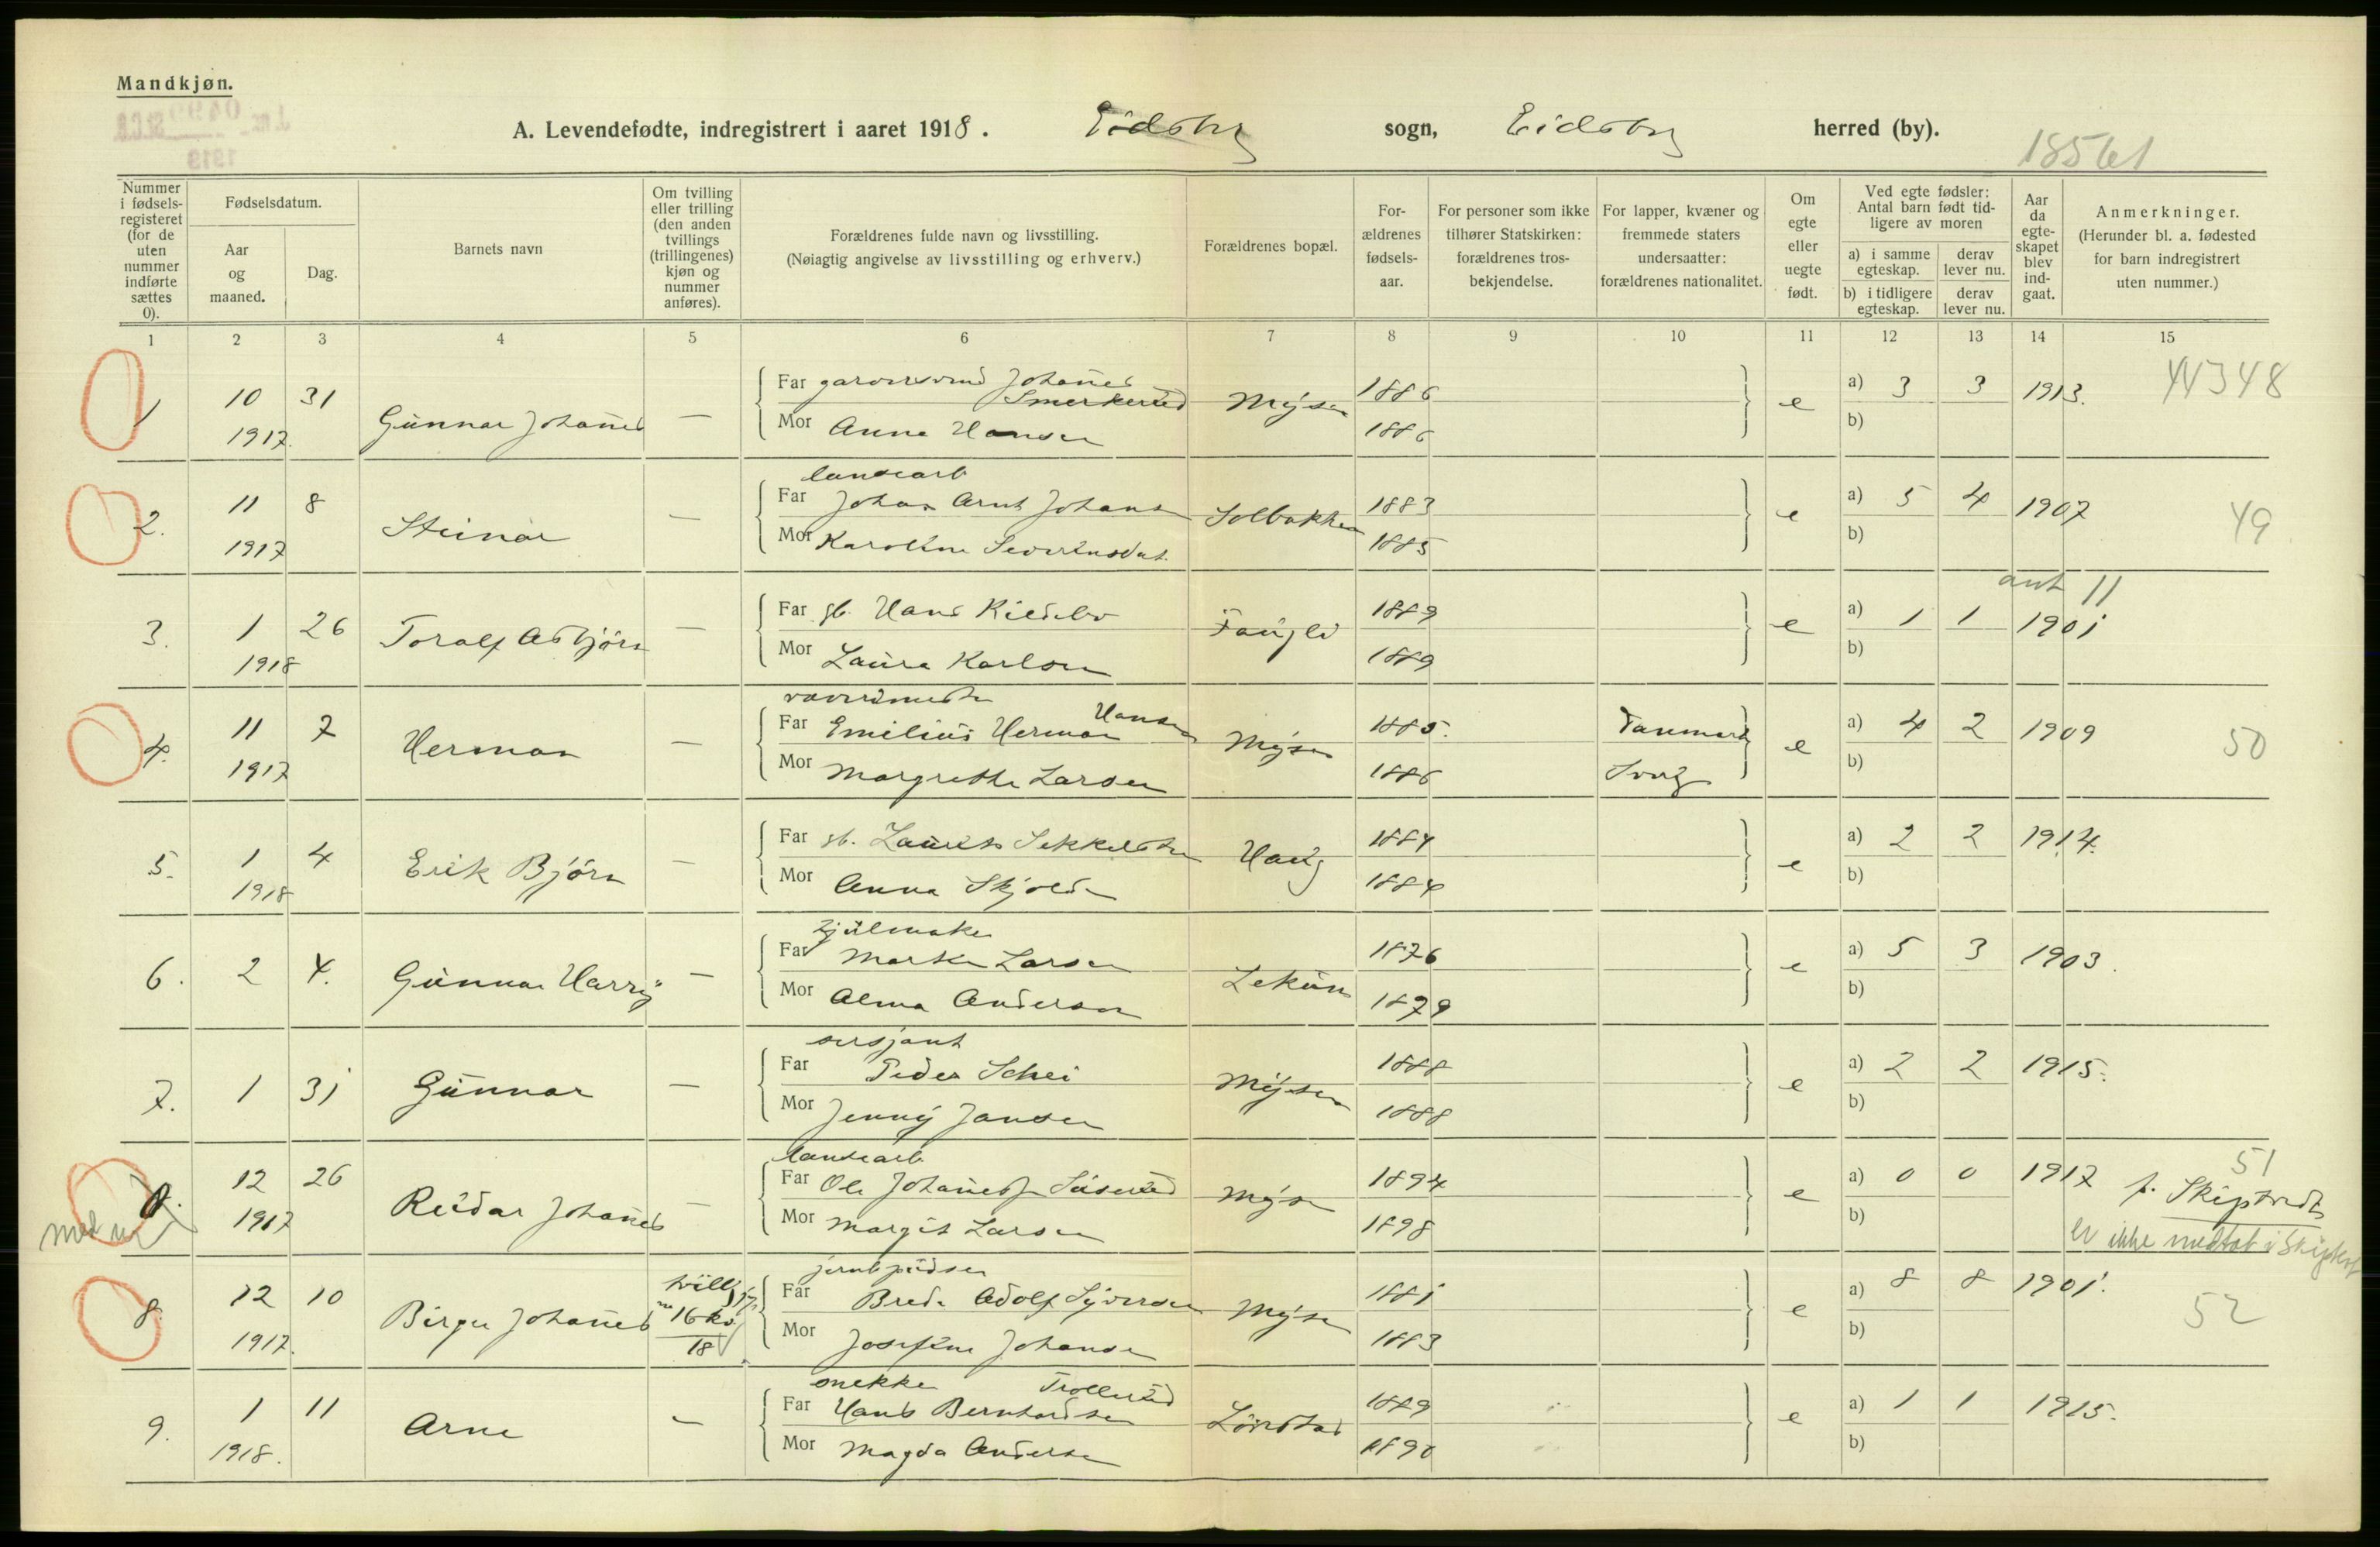 Mandkjøn.
A. Levendefødte, indregistrert i aaret 1918. Eidsberg sogn, Eidsberg herred (by).
18561
Nummer i fødsels-registeret (for de uten nummer indførte sættes 0).
Fødselsdatum.
Aar og maaned.
Dag.
Barnets navn
Om tvilling eller trilling (den anden tvillings (trillingenes) kjøn og nummer anføres).
Forældrenes fulde navn og livsstilling.
(Nøiagtig angivelse av livsstilling og erhverv.)
Forældrenes bopæl.
For-ældrenes fødsels-aar.
For personer som ikke tilhører Statskirken: forældrenes tros-bekjendelse.
For lapper, kvæner og fremmede staters undersaatter: forældrenes nationalitet.
Om egte eller uegte født.
Ved egte fødsler: Antal barn født tid-ligere av moren
a) i samme egteskap.
derav lever nu.
b) i tidligere egteskap.
derav lever nu.
Aar da egte-skapet blev ind-gaat.
Anmerkninger.
(Herunder bl. a. fødested for barn indregistrert uten nummer.)
1 2 3 4 5 6 7 8 9 10 11 12 13 14 15
1 10 31 Far Johannes Smerkerud Mysen 1886 e a) 3 3 1913. 44348
1917. Gunnar Johannes — Mor Anna Hansen 1886 b)
landearb
2. 11 8 Steinar — Far Johan Arnt Johans Solbakken 1883 e a) 5 4 1907 49
1917 Mor Karoline Severinsdat. 1885 b)
ant 11
3. 1 26 Toralf Asbjørn — Far gb. Hans 1889 e a) 1 1 1901
1918 Mor Laura Karlsen 1889 b)
4. 11 7 Herman — Far Emilius Herman Hansen Mysen 1885. Danmark e a) 4 2 1909 50
1917 Mor Margrethe Larsen 1886 Sverg b)
5. 1 4 Erik Bjørn — Far gb. Laurits Haug 1884 e a) 2 2 1914.
1918 Mor Anna Skjolde 1884 b)
hjulmaker
6. 2 4. Gunnar Harry — Far Larsen Lekum 1876 e a) 5 3 1903.
Mor Alma Anderson 1879 b)
sersjant
7. 1 31 Gunnar — Far Peder Schei Mysen 1888 e a) 2 2 1915.
Mor Jenny Jansen 1888 b)
landearb
0. 12 26 Reidar Johannes — Far Ole Mysen 1894 e a) 0 0 1917 51
1917 Mor Margit Larsen 1898 b) f. Skiptvedt
er ikke medtat i Skiptvet
8. 12 10 Birger Johannes tvill Far Adolf Syversen Mysen 1881 e a) 8 8 1901. 52
1917. 16 kv. 18 Mor Josefine Johansen 1883 b)
snekker Trollerud
9. 1 11 Arne — Far Hans Bernhardsen Lörstad 1889 e a) 1 1 1915.
1918. Mor Magda Andersen 1890 b)